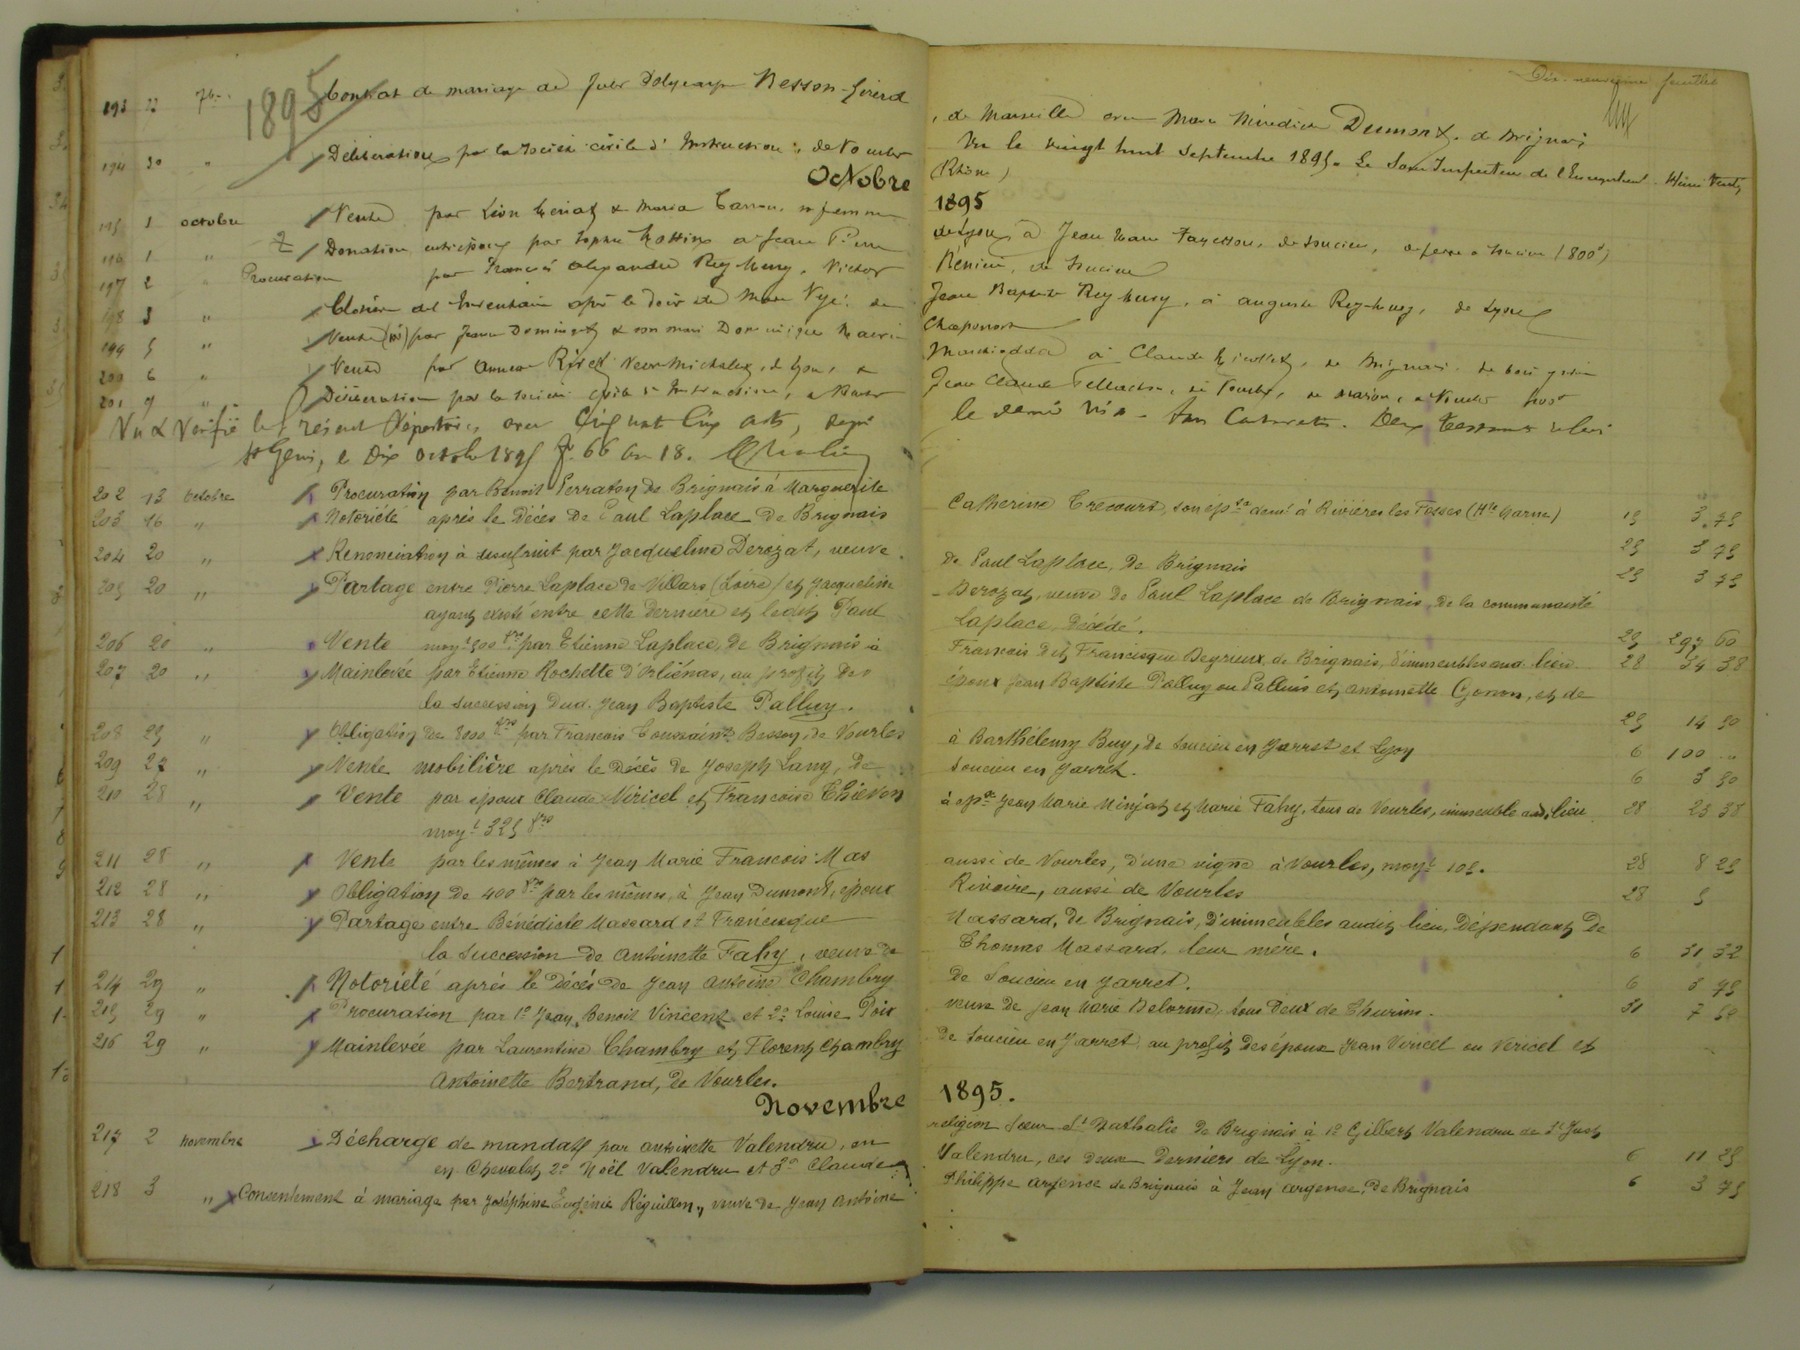 Dix neuvième feuillet
1895
193 22 7bre Contrat de mariage de Jules Polycarpe Besson-Girerd, de Marseille avec Marie Bénédicte Dumont, de Brignais
194 30 " Délibération par la Société civile d'Instruction, de Vourles (Rhône)
Vu le vingt huit Septembre 1895. Le Sous Inspecteur de l'Enregistrement
Octobre 1895
195 1 octobre Vente par Léon & Maria sa femme de Lyon, à Jean Marie de Soucieu, de terre à Soucieu (800f)
196 1 " Donation par Sophie à Jean Pierre de Soucieu
197 2 " Procuration par François Alexandre Rey-Huey, Victor Jean Baptiste Rey-Huey, à Auguste Rey-Huey, de Lyon
198 3 " Clôture de l'Inventaire après le décès de Mme de Chaponost
199 5 " Vente par Jeanne & son mari Dominique à Claude de Brignais, de bois
200 6 " Vente par Annette Rivet Veuve Michalet, de Lyon, à Jean Claude de Vourles, de maison, à Vourles
201 9 " Délibération par la Société civile d'Instruction, à Vourles
Vu & Vérifié le présent Répertoire avec Cinquante Cinq acts, depuis le dernier Visa.
St Genis, le Dix octobre 1895 f° 66 Case 18.
202 13 octobre Procuration par Benoit Perraton de Brignais à Marguerite Catherine Trécourt, son épse demt à Rivières les Fosses (Hte Marne) 15 3.75
203 16 " Notoriété après le Décès de Paul Laplace de Brignais 25 3 75
204 20 " Renonciation à usufruit par Jacqueline Derozat, veuve de Paul Laplace, de Brignais 25 3 75
205 20 " Partage entre Pierre Laplace de Villars (Loire) et Jacqueline Derozat, veuve de Paul Laplace de Brignais, de la communauté
ayant existé entre cette dernière et ledit Paul Laplace, Décédé. 25 297 60
206 20 " Vente moyt 500 frs par Etienne Laplace, de Brignais à François dit Francisque Deyrieux, de Brignais, d'immeubles aud. lieu 28 34 38
207 20 " Mainlevée par Etienne Rochette d'Orliénas, au profit des époux Jean Baptiste Palluy ou Palluis et Antoinette Gonon, et de
la succession dud. Jean Baptiste Palluy. 25 14 50
208 25 " Obligation de 8000 frs par François Toussaint Besson, de Vourles à Barthélemy Buy, de Soucieu en Jarret et Lyon 6 100 "
209 27 " Vente mobilière après le Décès de Joseph Lang, de Soucieu en Jarret. 6 3 50
210 28 " Vente par époux Claude Viricel et Francoise Thievon à epx Jean Marie Minjat et Marie Fahy, tous de Vourles, immeuble aud. lieu 28 23 38
moyt 325 frs
211 28 " Vente par les mêmes à Jean Marie Francois Mas aussi de Vourles, d'une vigne à Vourles, moyt 105. 28 8 25
212 28 " Obligation de 400 frs par les mêmes, à Jean Dumont, époux Rivoire, aussi de Vourles 28 5
213 28 " Partage entre Bénédicte Massard et Francisque Massard, de Brignais, d'immeubles audit lieu, Dépendant de
la succession de Antoinette Fahy, veuve de Thomas Massard, leur mère. 6 31 32
214 29 " Notoriété après le Décès de Jean Antoine Chambry de Soucieu en Jarret. 6 3 75
215 29 " Procuration par 1° Jean Benoit Vincent et 2° Louise Poix veuve de Jean Marie Delorme, tous deux de Thurins. 31 7 50
216 29 " Mainlevée par Laurentine Chambry et Florent Chambry de Soucieu en Jarret au profit des époux Jean Viricel ou Vericel et
Antoinette Bertrand, de Vourles.
Novembre 1895.
217 2 novembre Décharge de mandat par Antoinette Valendru, en religion Soeur St Nathalie de Brignais à 1° Gilbert Valendru de St Just
en Chevalet, 2° Noël Valendru et 3° Claude Valendru, ces deux derniers de Lyon. 6 11 25
218 3 " Consentement à mariage par Joséphine Eugénie Réguillon, veuve de Jean Antoine Philippe Argence de Brignais à Jean Argence, de Brignais 6 3 75